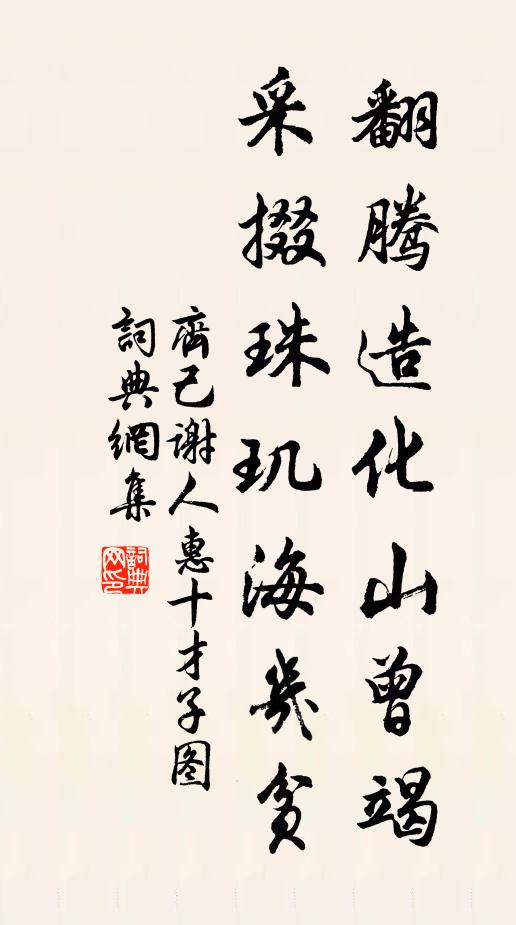 翻腾造化山曾竭
采掇珠玑海几贫
齊己谢人惠十才子图
詞典網集
詞典
网印